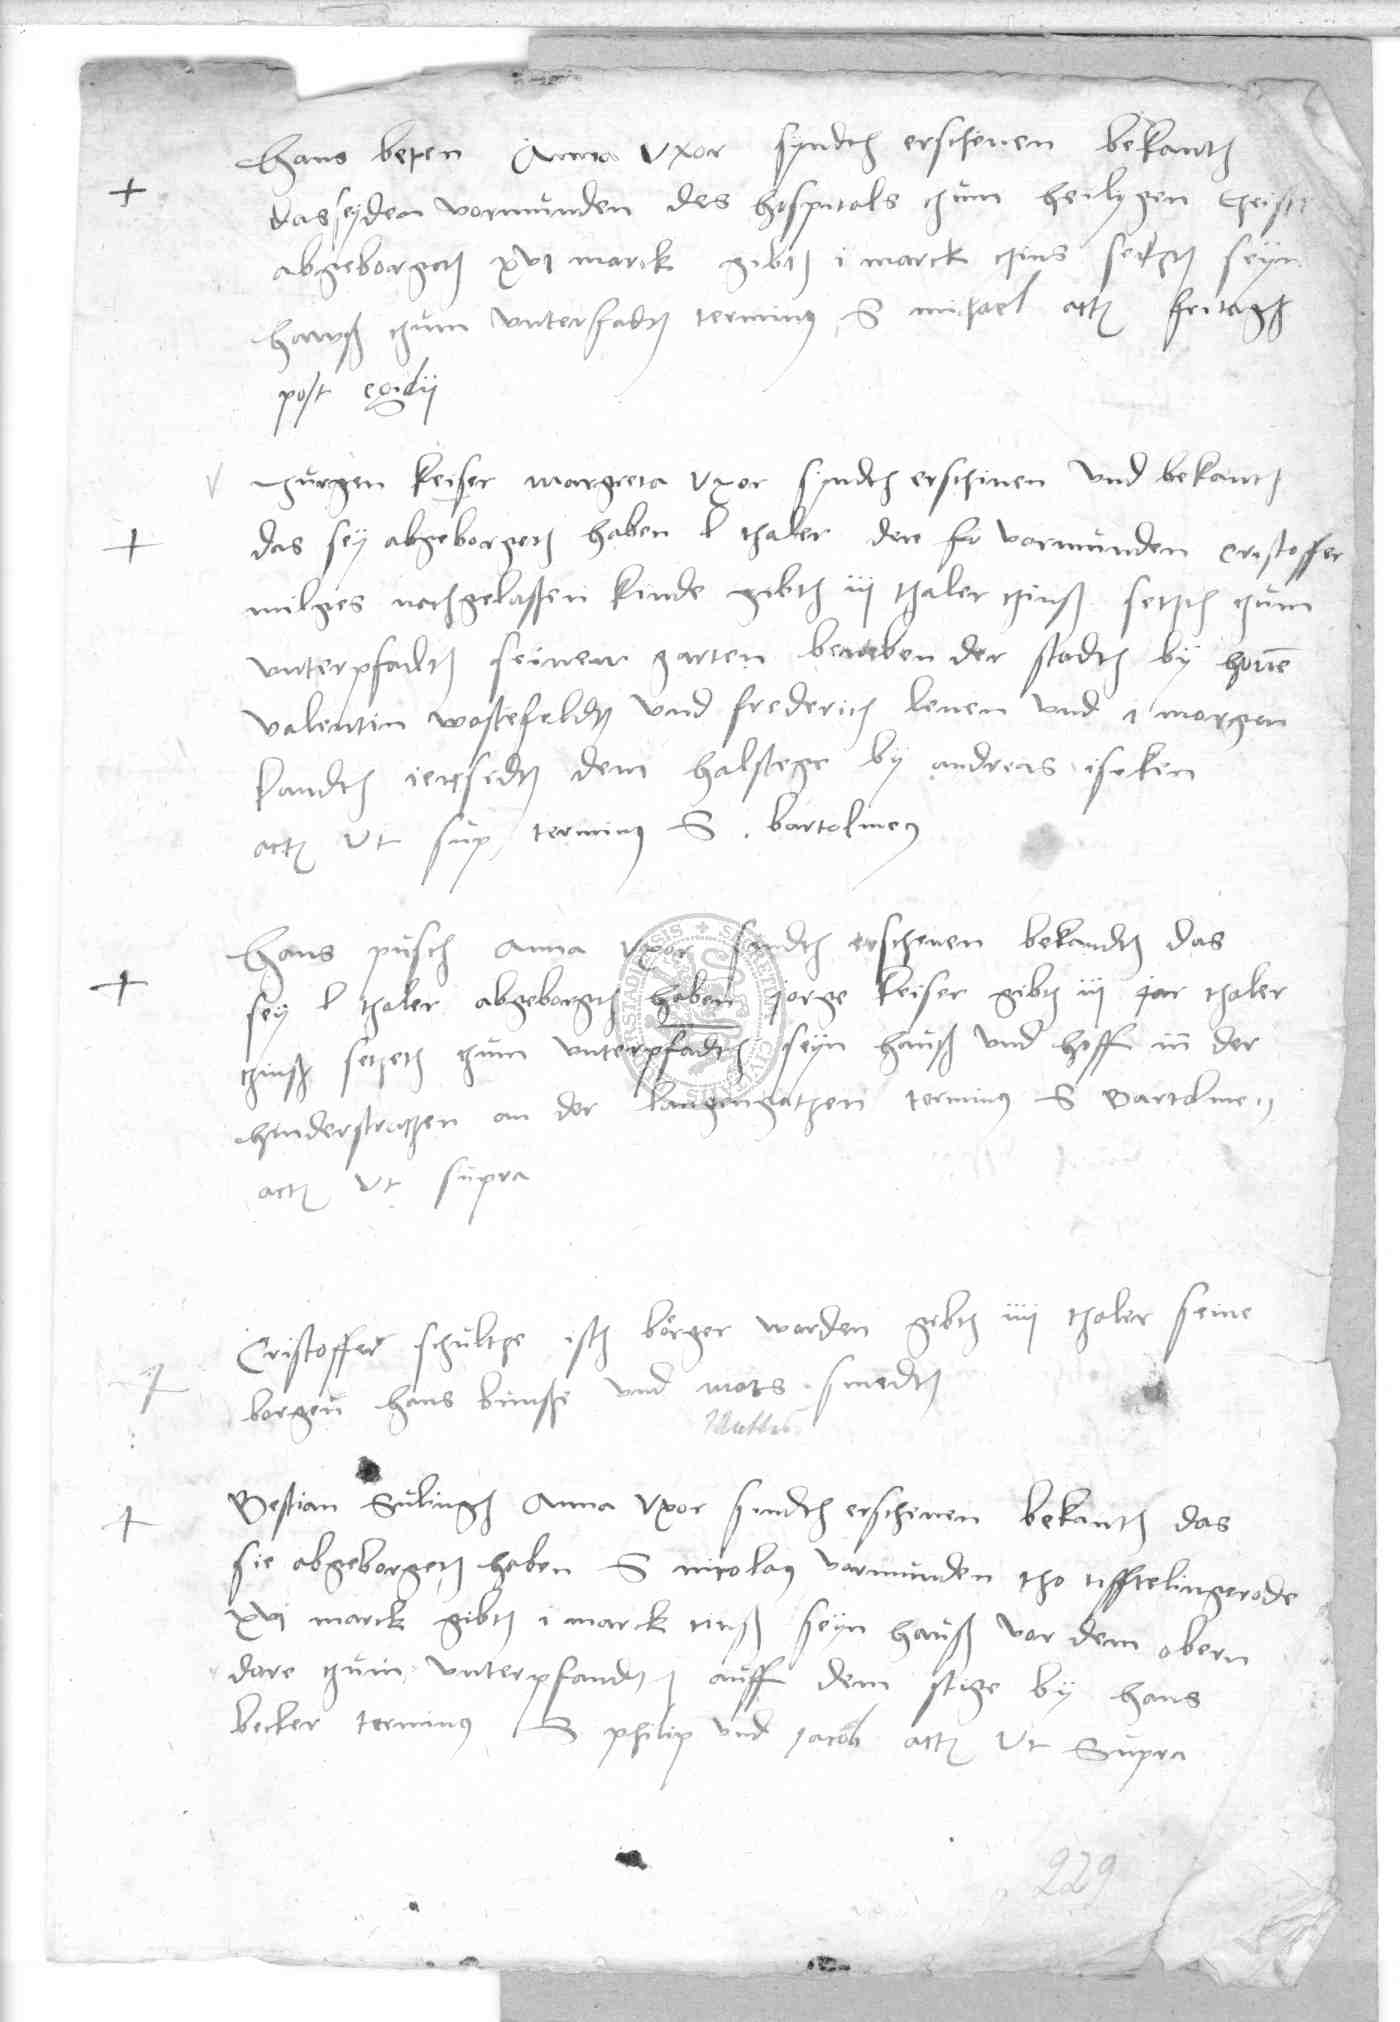 Hans beten Anna Vxor syndth erschenen bekanth
das sey den vormunden des hospitals zum heilygen Geist
abgeborgeth xvi marck gibth i marck zins setzth seyn
hawß zum vnterfadth terminus S michael actum fritagh
post egidii
Jurgen keiser margreta Vxor syndth erschinen vnd bekanth
das sey abgeborgeth haben l thaler den vormunden Cristoffer
milges nachgelaßen kinde gibth iij thaler zinß setzth zum
vnterpfadth seinen garten beneben der stadth by
valentin wostefeldth vnd frederich lenen vnd i morgen
landth iensidth dem halstege by andreas iseken
actum Vt sup terminus S. bartolmeus
Hans pusch Anna Vxor syndth erschenen bekandth das
sey l thaler abgeborgth haben jorge keiser gibth iij thaler
zinß setzeth zum vnterpfadth seyn hauß vnd hoff in der
hinderstratzen an der langengatzen terminus S Bartolmeus
actum Vt supra
Cristoffer schultze isth börger worden gebth iiij thaler seine
borgen hans und mats smedth
Bestian Sulingh Anna Vxor syndth erschinen bekanth das
sie abgeborgeth haben S nicolaus vormunden tho tifftelingerode
xvi marck gibth i marck zinß seyn hauß vor dem obern
dore zum vnterpfandth auff dem stige by hans
becker terminus S philip vnd jacob actum Vt Supra
229